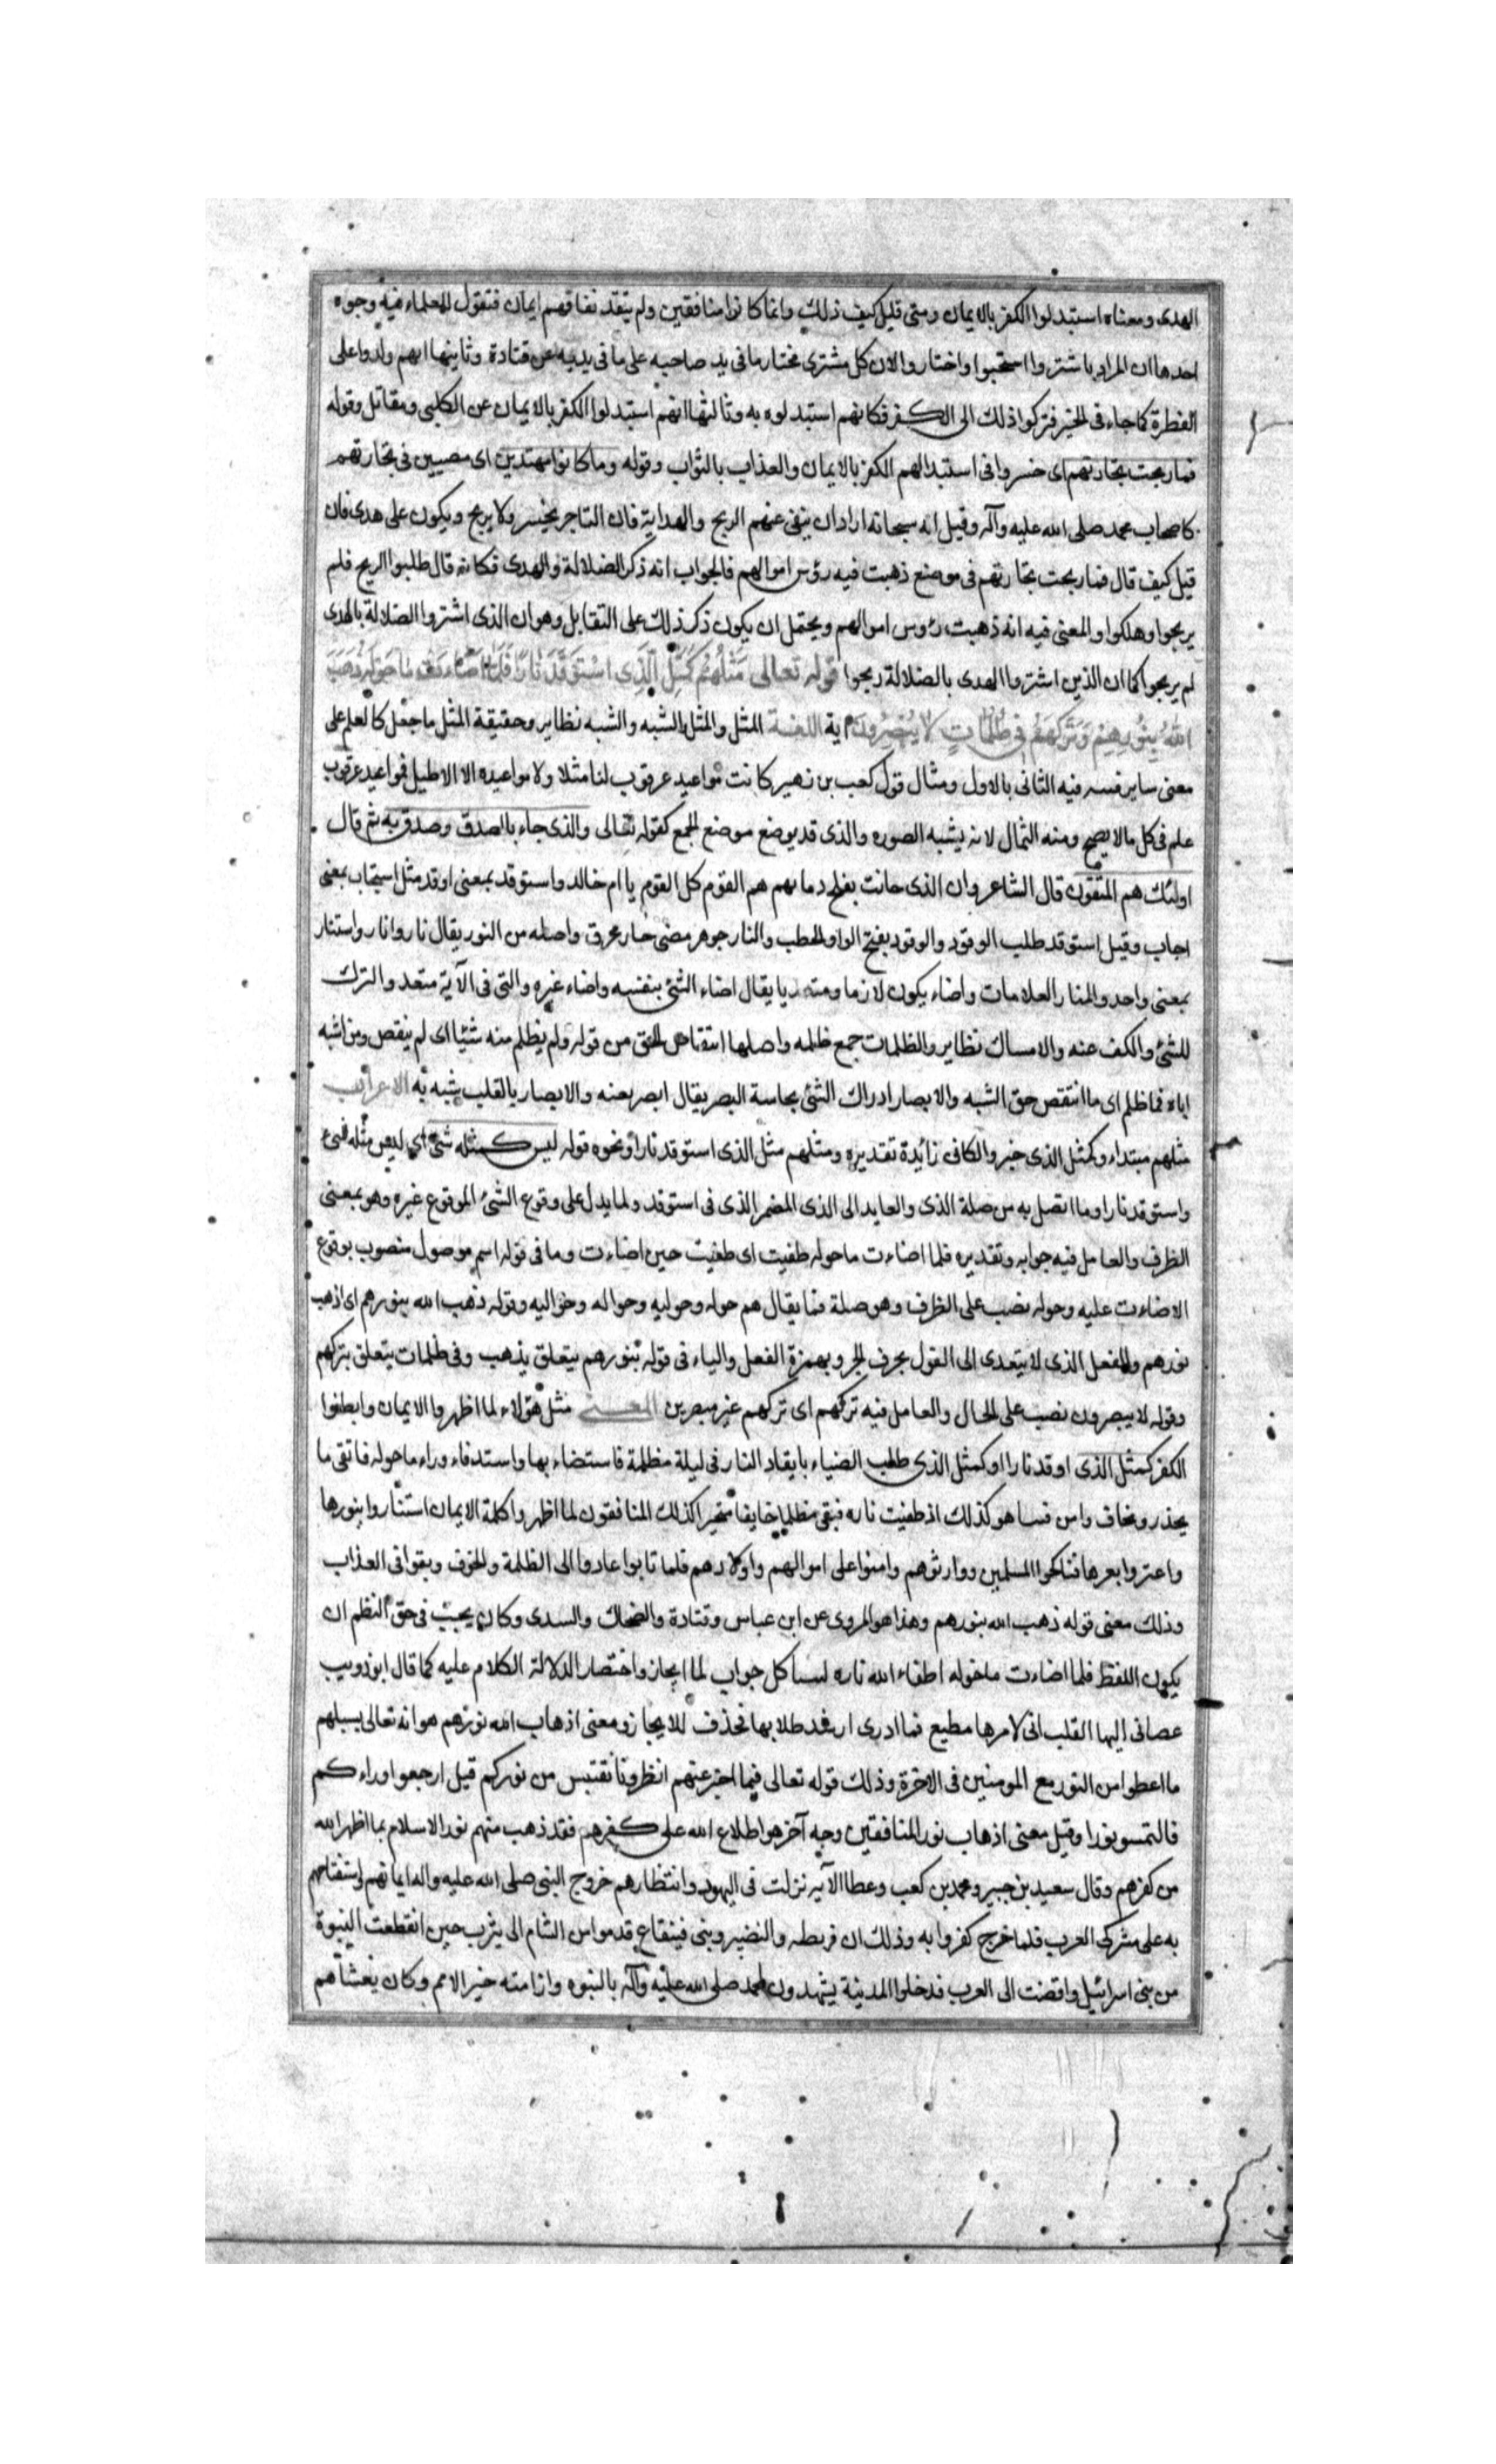 الهدى ومعناه استبدلوا الكفر بالايمان ومتى قليل كيف ذلك وانما كانوا منافقين ولم يتقد نفاقهم ايمان فنقول للعلماء فيه وجوه
احدها ان المراد باشتروا استحبوا واختاروا لان كل مشترى مختار ما فى يد صاحبه على ما فى يديه عن قتادة وثانيها انهم ولدوا على
الفطرة كما جاء فى الخبر فتركوا ذلك الى الكفر فكانهم استبدلوه به وثالثها انهم استبدلوا الكفر بالايمان عن الكلبى ومقاتل وقوله
فما ربحت تجارتهم اى خسروا فى استبدالهم الكفر بالايمان والعذاب بالثواب وقوله وما كانوا مهتدين اى مصيبين فى تجارتهم
كاصحاب محمد صلى الله عليه وآله وقيل انه سبحانه اراد ان ينفى عنهم الربح والهداية فان التاجر يخسر ولا يربح ويكون على هدى فان
قيل كيف قال فما ربحت تجارتهم فى موضع ذهبت فيه رؤس اموالهم فالجواب انه ذكر الضلالة والهدى فكانه قال طلبوا الربح فلم
يربحوا وهلكوا والمعنى فيه انه ذهبت رؤس اموالهم ويحتمل ان يكون ذكر ذلك على التقابل وهو ان الذى اشتروا الضلالة بالهدى
لم يربحوا كما ان الذين اشتروا الهدى بالضلالة ربحوا قوله تعالى مَثَلُهُمْ كَمَثَلِ الَّذِى اسْتَوْقَدَ نَارًا فَلَمَّا اَضَاءَتْ مَا حَوْلَهُ ذَهَبَ
اللهُ بِنُورِهِمْ وَتَرَكَهُمْ فِى ظُلُمَاتٍ لَا يُبْصِرُونَ آية اللغة المثل والمثل والشبه والشبه نظاير وحقيقة المثل ما جعل كالعلم على
معنى ساير فسه فيه الثانى بالاول ومثال قول كعب بن زهير كانت مواعيد عرقوب لنا مثلا ولا مواعيده الا الاطيل فمواعيد عرقوب
علم فى كل ما لا يصح ومنه التمال لانه يشبه الصوره والذى قد يوضع موضع الجمع كقوله تعالى والذى جاء بالصدق وصدق به ثم قال
اولئك هم المتقون قال الشاعر وان الذى حانت بفلج دماؤهم هم القوم كل القوم يا ام خالد واستوقد بمعنى اوقد مثل استجاب بمعنى
اجاب وقيل استوقد طلب الوقود والوقود بفتح الواو الحطب والنار جوهر مضئ حار محرق واصله من النور يقال نار وانار واستنار
بمعنى واحد والمنار العلامات واضاء يكون لازما ومتعديا يقال اضاء الشئ بنفسه واضاء غيره والتى فى الآية متعد والترك
للشئ والكف عنه والامساك نظاير والظلمات جمع ظلمه واصلها انتقاص الحق من قوله ولم يظلم منه شيئا اى لم ينقص ومن اشبه
اباه فما ظلم اى ما انتقص حق الشبه والابصار ادراك الشئ بحاسة البصر يقال ابصر بعينه والابصار بالقلب شبه به الاعراب
مثلهم مبتداء وكمثل الذى خبر والكافى زائدة تقديره ومثلهم مثل الذى استوقد نارا ونحوه قوله ليس كمثله شئ اى ليس مثله شئ
واستوقد نارا وما اتصل به من صلة الذى والعايد الى الذى المضمر الذى فى استوقد ولما يدل على وقوع الشئ الموقوع غيره وهو بمعنى
الظرف والعامل فيه جوابه وتقديره فلما اضاءت ما حوله طفيت اى طفيت حين اضاءت وما فى قوله اسم موصول منصوب بوقوع
الاضاءت عليه وحوله نصب على الظرف وهو صلة فما يقال هم حوله وحوليه وحواله وحواليه وقوله ذهب الله بنورهم اى اذهب
نورهم والفعل الذى لا يتعدى الى القول بحرف الجر وبهمزة الفعل والباء فى قوله بنورهم يتعلق بذهب وفى ظلمات يتعلق بتركهم
وقوله لا يبصرون نصب على الحال والعامل فيه تركهم اى تركهم غير مبصرين المعنى مثل هؤلاء لما اظهروا الايمان وابطنوا
الكفر كمثل الذى اوقد نارا او كمثل الذى طلب الضياء بايقاد النار فى ليلة مظلمة فاستضاء بها واستدفاء وراء ما حوله فاتقى ما
يحذر ويخاف وامن فبينا هو كذلك اذ طفيت ناره فبقى مظلما خايفا متحيرا كذلك المنافقون لما اظهروا كلمة الايمان استناروا بنورها
واعتزوا بعزها فناكحوا المسلمين ووارثوهم وامنوا على اموالهم واولادهم فلما تابوا عادوا الى الظلمة والخوف وبقوا فى العذاب
وذلك معنى قوله ذهب الله بنورهم وهذا هو المروى عن ابن عباس وقتادة والضحاك والسدى وكان يجب فى حق النظم ان
يكون اللفظ فلما اضاءت ماحوله اطفاء الله ناره ليساكل جواب لما ايجاز واختصار الدلالة الكلام عليه كما قال ابو ذويب
عصانى اليها القلب انى لامرها مطيع فما ادرى ارشد طلابها نحذف للايجاز ومعنى اذهاب الله نورهم هو انه تعالى يسلبهم
ما اعطوا من النور مع المومنين فى الاخرة وذلك قوله تعالى فيما اخبر عنهم انظرونا نقتبس من نوركم قيل ارجعوا وراءكم
فالتمسوا نورا وقيل معنى اذهاب نور المنافقين وجه آخر هو اطلاع الله على كفرهم فقد ذهب منهم نور الاسلام بما اظهر الله
من كفرهم وقال سعيد بن جبير ومحمد بن كعب وعطا الآية نزلت فى اليهود وانتظارهم خروج النبى صلى الله عليه واله ايمانهم واستفتاحهم
به على مشركى العرب فلما خرج كفروا به وذلك ان قريطه والنضير وبنى قينقاع قدموا من الشام الى يثرب حين انقطعت النبوة
من بنى اسرائيل واقضت الى العرب فدخلوا المدينة يشهدون لمحمد صلى الله عليه وآله بالنبوه وان امته خير الامم وكان يغشاهم